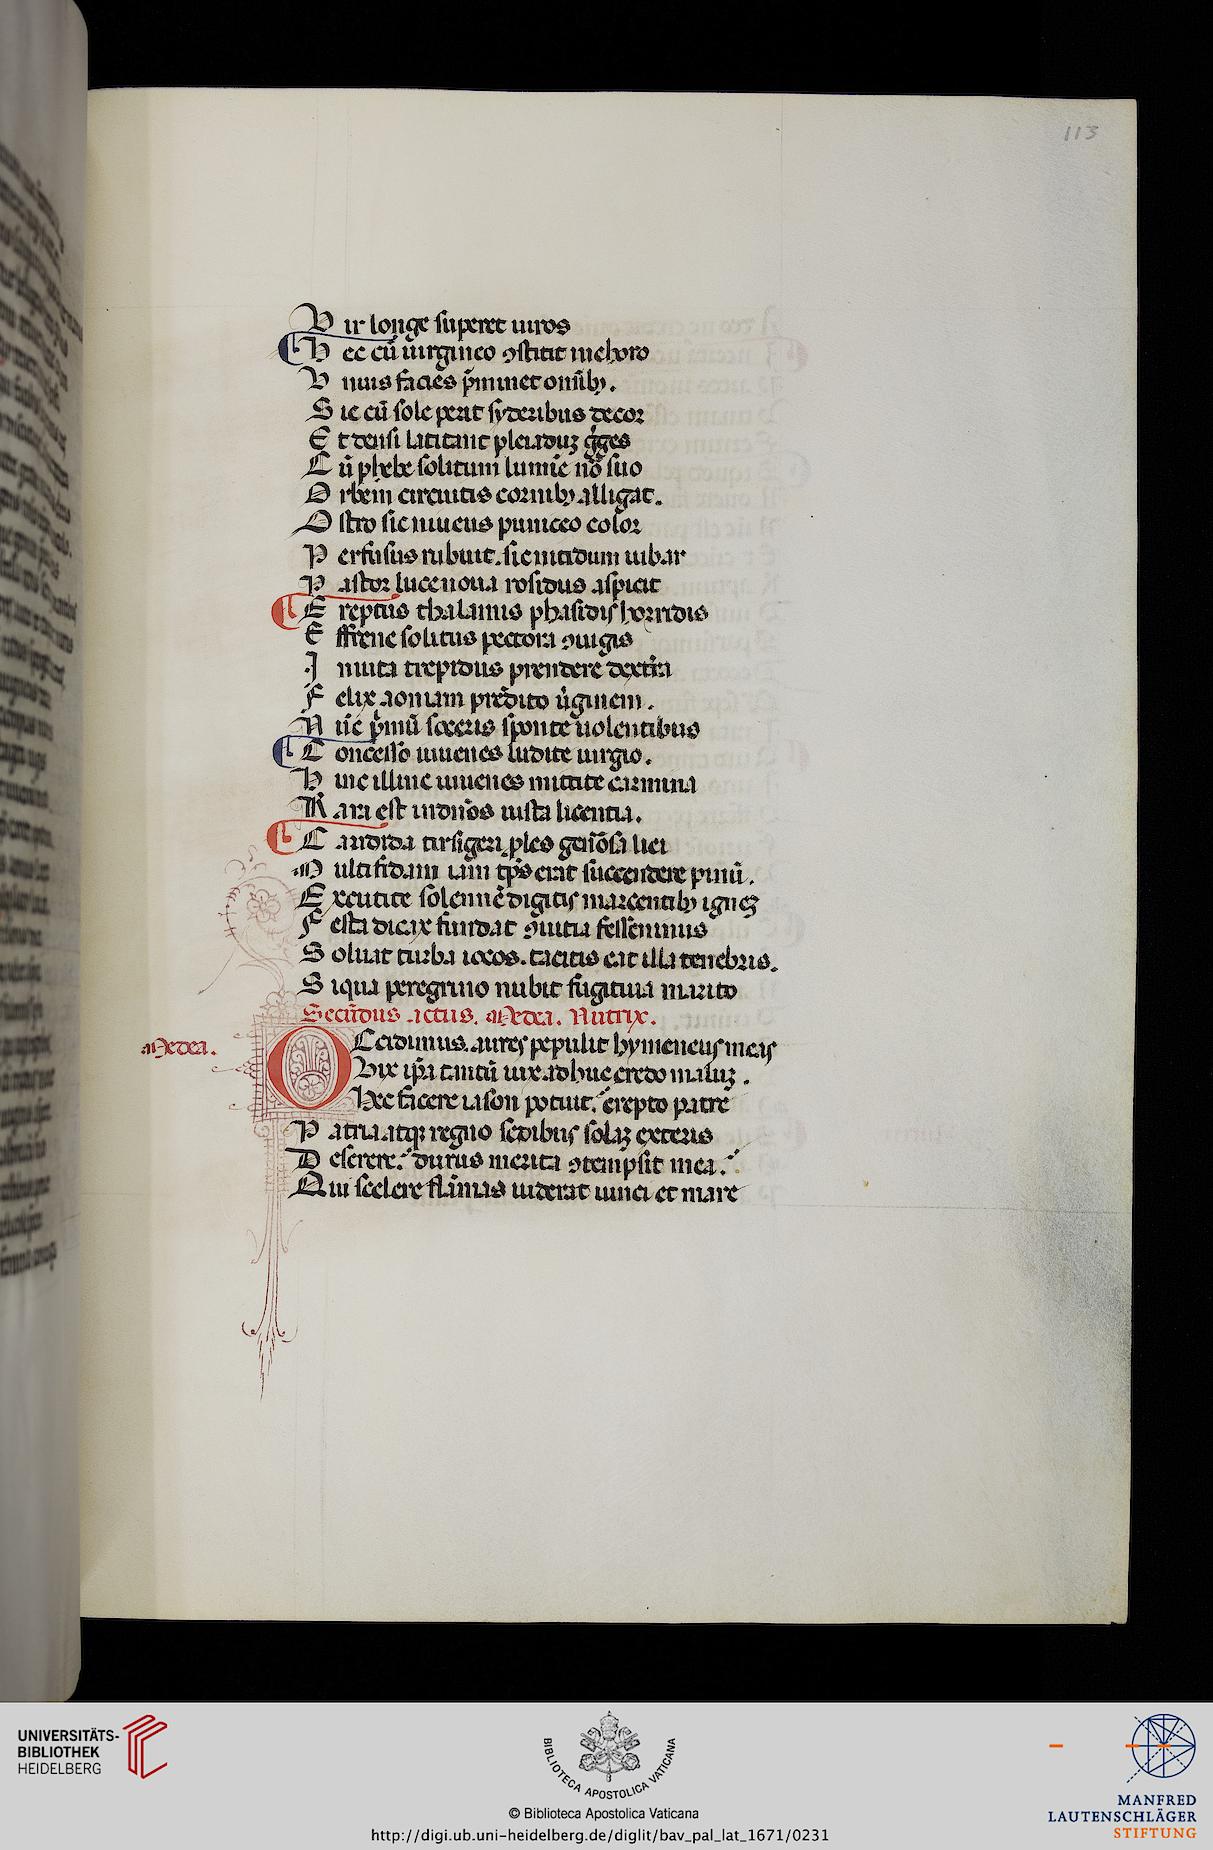 113
Vir longe superet uiros
Hec cũ uirgineo ꝯstitit in choro
Vnius facies p̃minet omĩbꝫ.
Sic cũ sole perit syderibus decor
Et densi latitant pleiaduꝫ gͥges
Cũ phebe solitum lumĩe nõ suo
Orbem circuitis cornibꝫ alligat.
Ostro sic niueus puniceo color
Perfusus rubuit. sic nitidum iubar
Pastor luce noua rosidus aspicit
Ereptus thalamis phasidis horridis
Effrene solitus pectora ꝯiugis
Inuita trepidus prendere dext̃ra
Felix aoniam predito ũginem.
Nũc pͥmũ soceris sponte uolentibus
Concesso iuuenes ludite iurgio.
Hinc illinc iuuenes mittite carmina
Rara est in dños iusta licentia.
Candida tirsigeri ꝓles geñosa liei
Multifidam iam tꝑs erat succendere pinũ.
Excutite solennẽ digitis marcentibꝫ igneꝫ
Festa dicax fundat ꝯuitia fessenninus
Soluat turba iocos. tacitis eat illa tenebris.
Siqua peregrino nubit fugitiua marito
Secũdus actus. Medea. Nutrix.
Medea.
OCcidimus. aures pepulit hymeneus meas
Vix ip̃a tantũ uix adhuc credo maluꝫ.
Hec facere iason potuit. erepto patre
Patria atqꝫ regno sedibus solaꝫ exteris
Deserere. durus merita ꝯtempsit mea.
Qui scelere flãmas uiderat uinci et mare
UNIVERSITÄTS-
BIBLIOTHEK
HEIDELBERG
BIBLIOTECA APOSTOLICA VATICANA
© Biblioteca Apostolica Vaticana
http://digi.ub.uni-heidelberg.de/diglit/bav_pal_lat_1671/0231
MANFRED
LAUTENSCHLÄGER
STIFTUNG